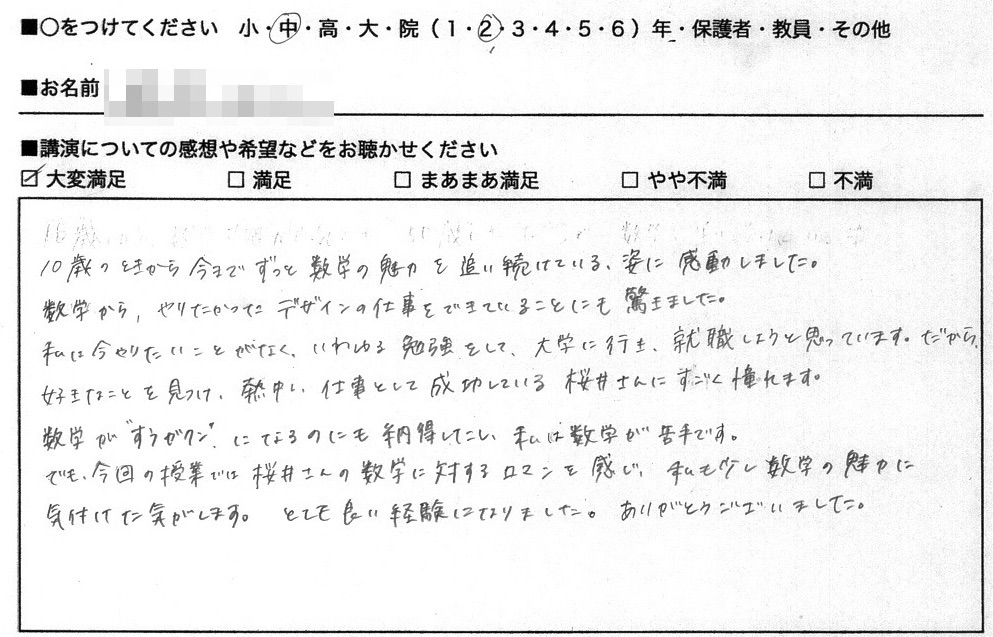 ■○をつけてください 小・中・高・大・院（1・2・3・4・5・6）年・保護者・教員・その他
■お名前
■講演についての感想や希望などをお聴かせください
☑ 大変満足 □ 満足 □ まあまあ満足 □ やや不満 □ 不満
10歳のときから今までずっと数学の魅力を追い続けている、姿に感動しました。
数学から、やりたかったデザインの仕事をできていることにも驚きました。
私は今やりたいことがなく、いわゆる勉強をして、大学に行き、就職しようと思っています。だから、
好きなことを見つけ、熱中し、仕事として成功している桜井さんにすごく憧れます。
数学が"すうがクン"になるのにも納得したし、私は数学が苦手です。
でも、今回の授業では桜井さんの数学に対するロマンを感じ、私も少し数学の魅力に
気付けた気がします。 とても良い経験になりました。 ありがとうございました。